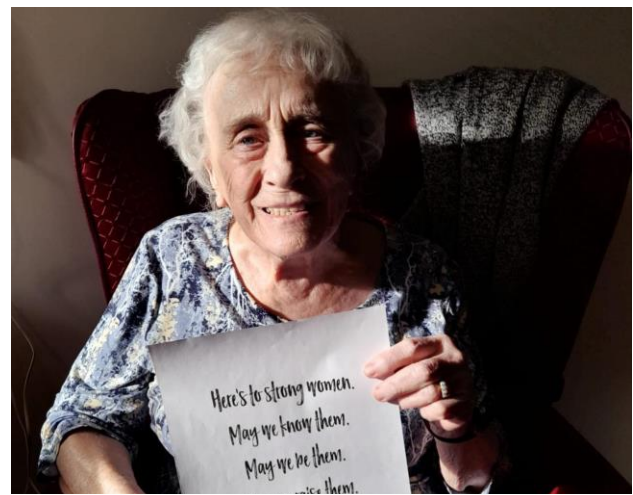 Here's to strong women.
May we know them.
May we be them.
them.